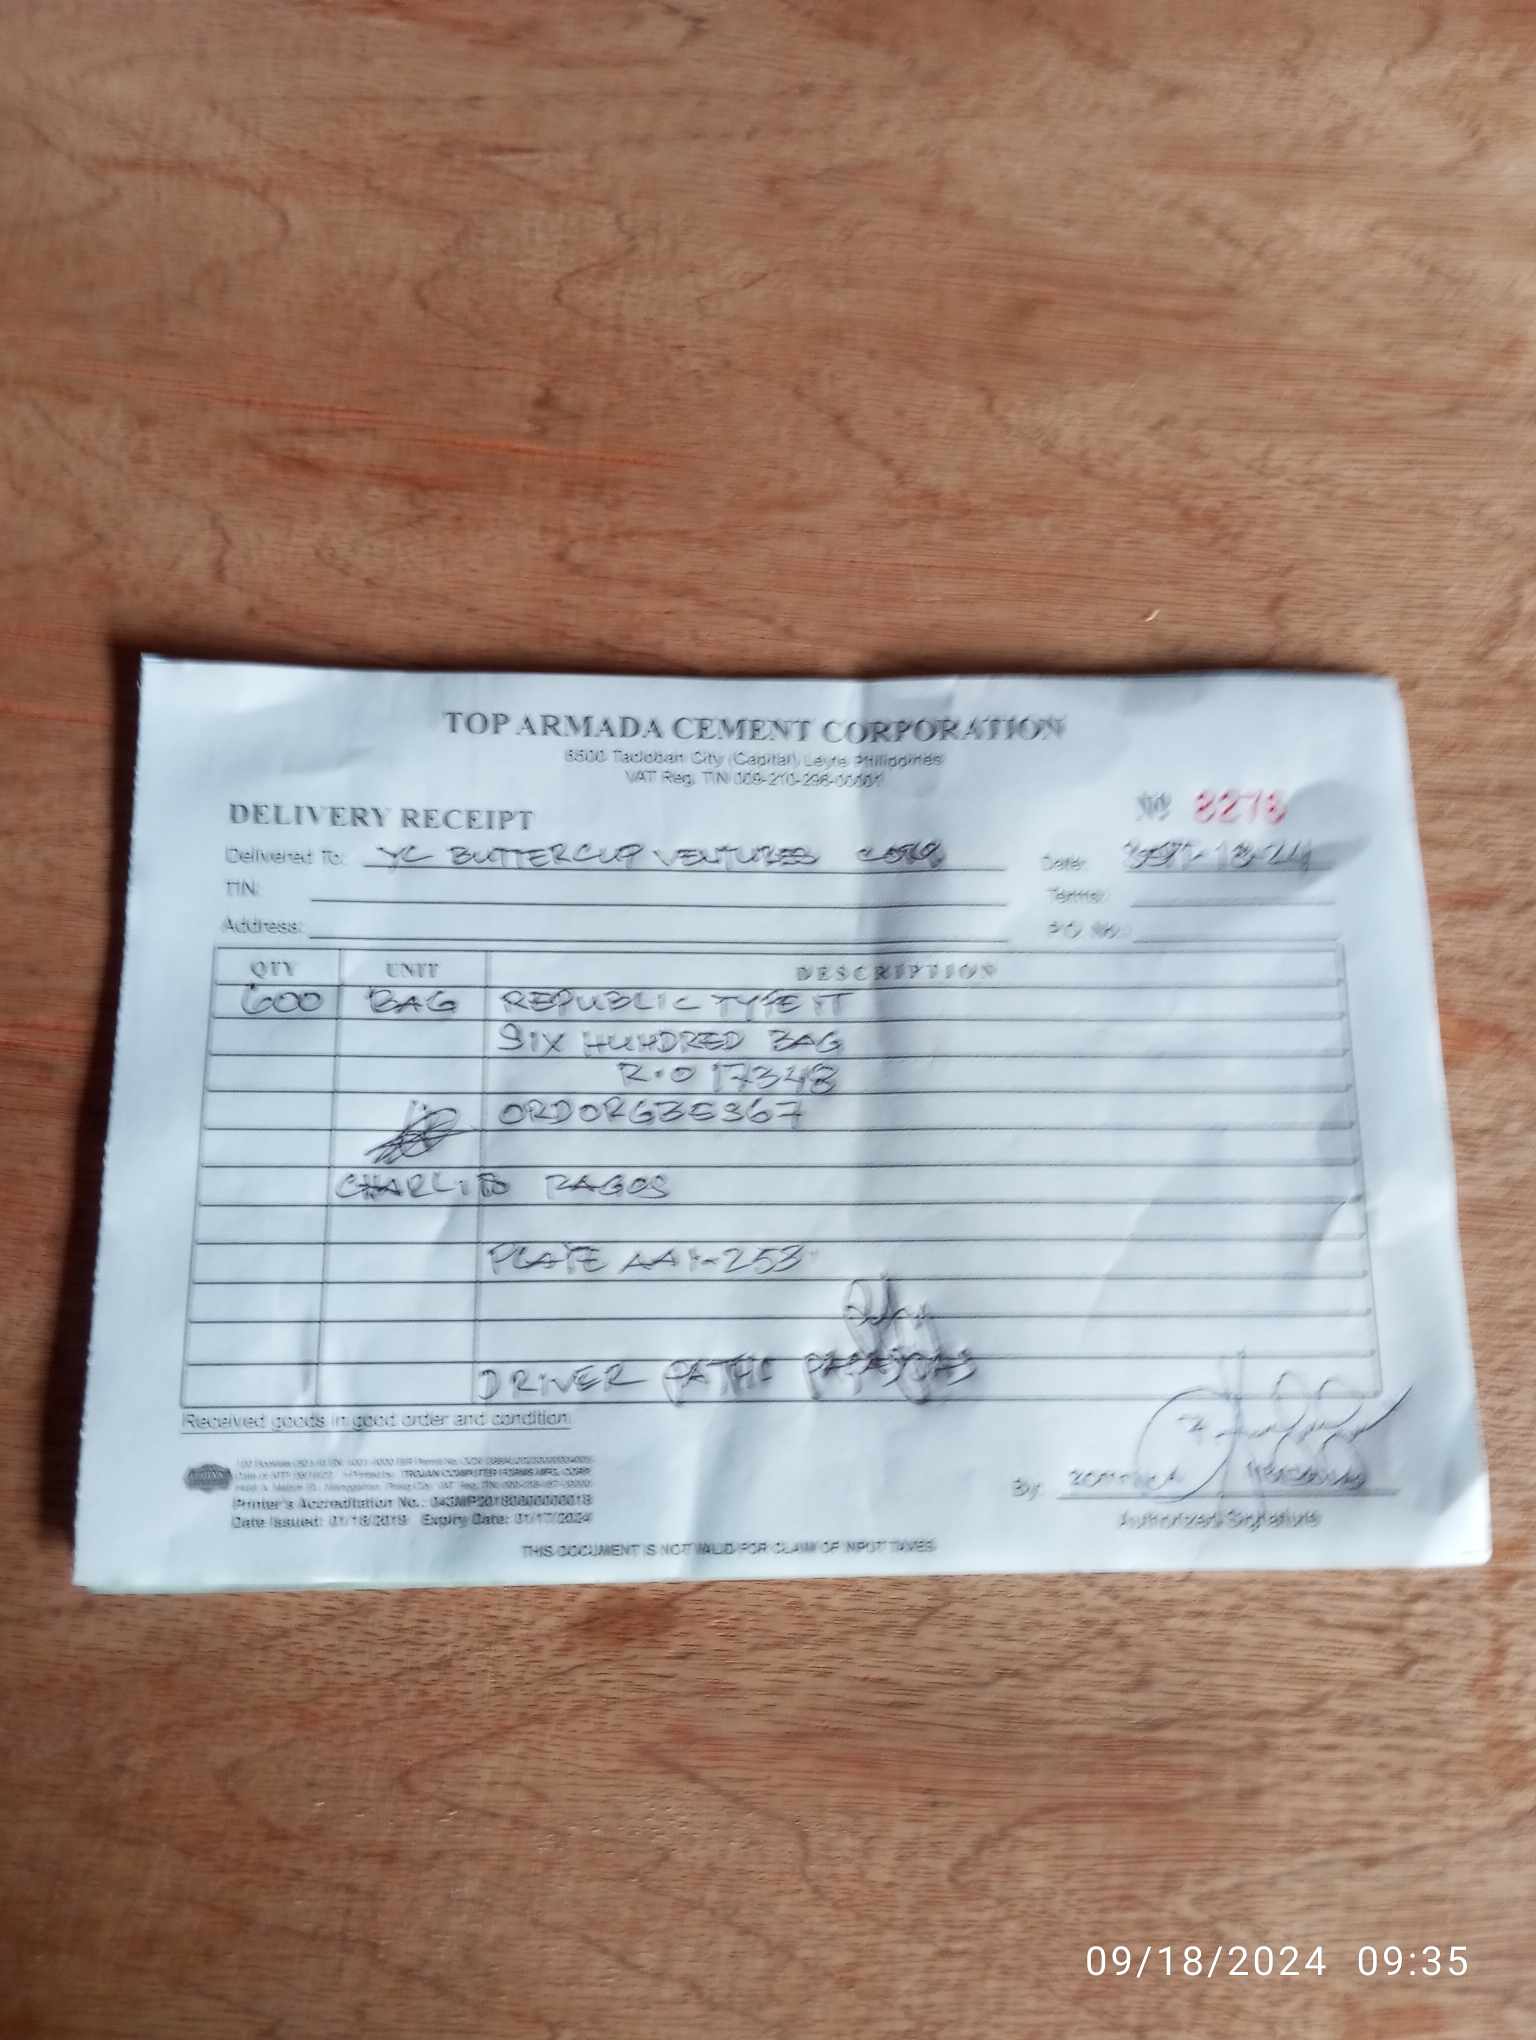 TOP ARMADA CEMENT CORPORATION
6500 Tacloban City (Capital) Leyte Philippines
VAT Reg. TIN 009-210-296-00001
DELIVERY RECEIPT
No 8278
Delivered To: YC BUTTERCUP VENTURES CORP
Date:
TIN:
Terms:
Address:
P.O. No.:
QTY UNIT DESCRIPTION
600 BAG REPUBLIC TYPE 1T
SIX HUNDRED BAG
R.O 17348
ORDORG35367
CHARLITO RAGOS
PLATE AAY-253
DRIVER
Received goods in good order and condition
TROJAN COMPUTER FORMS MFG. CORP.
Printer's Accreditation No.: 043MP20180000000018
Date Issued: 01/18/2019 Expiry Date: 01/17/2024
By:
Authorized Signature
THIS DOCUMENT IS NOT VALID FOR CLAIM OF INPUT TAXES
09/18/2024 09:35